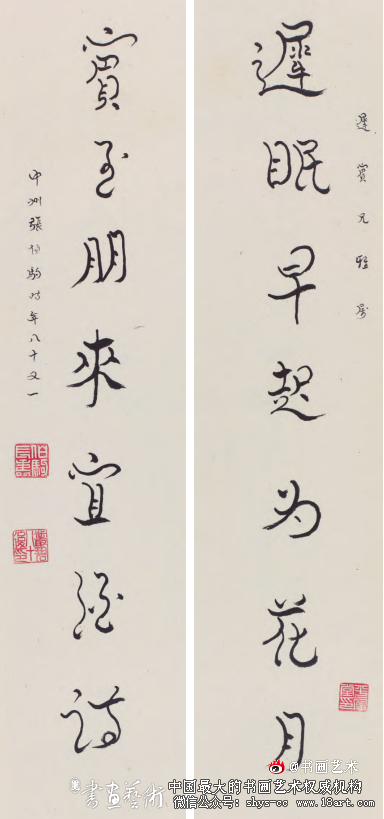 遲賓兄雅属
遲眠早起为花月
賓至朋來宜酒詩
中州張伯駒时年八十又一
@书画艺术
書画藝術
中国最大的书画艺术权威机构
微信公众号: shys-cc www.18art.com